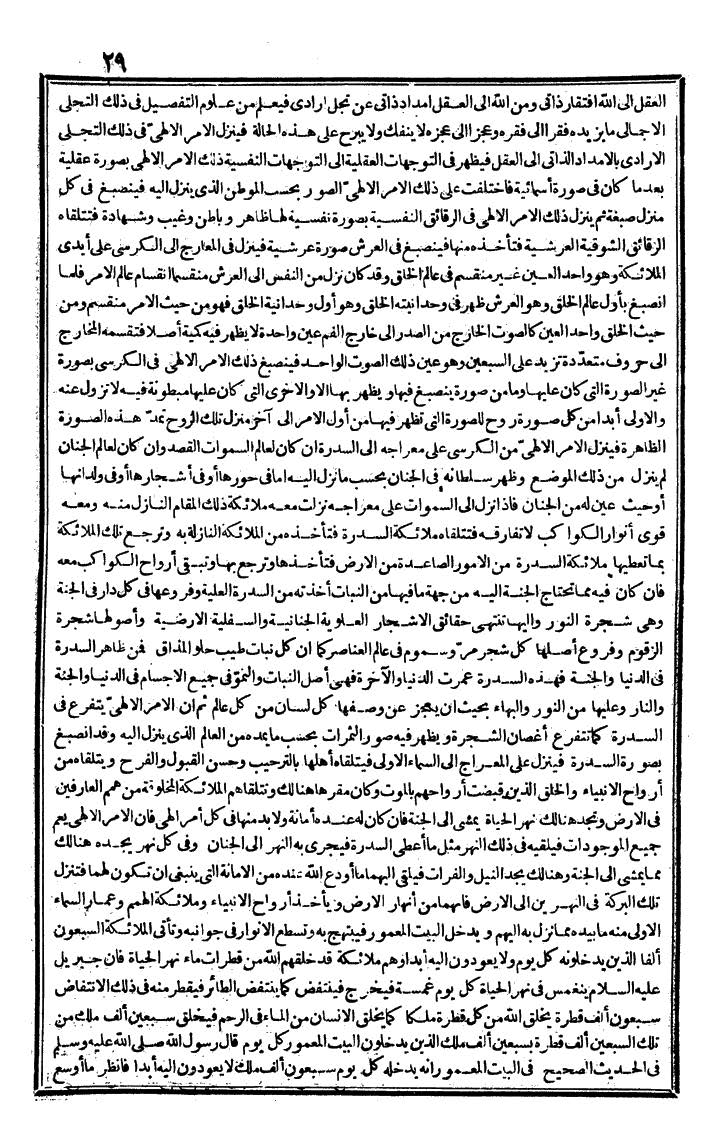 ٢٩
العقل الى الله افتقار ذاتى ومن الله الى العقل امداد ذاتى عن تجلى ارادى فيعلم من علوم التفصيل فى ذلك التجلى
الاجمالى ما يزيده فقرا الى فقره وعجزا الى عجزه لا ينفك ولا يبرح على هذه الحالة فينزل الامر الالهىّ فى ذلك التجلى
الارادى بالامداد الذاتى الى العقل فيظهر فى التوجهات العقلية الى التوجهات النفسية ذلك الامر الالهى بصورة عقلية
بعد ما كان فى صورة أسمائية فاختلفت على ذلك الامر الالهىّ الصور بحسب الموطن الذى ينزل اليه فينصبغ فى كل
منزل صبغة ثم ينزل ذلك الامر الالهىّ فى الرقائق النفسية بصورة نفسية لها ظاهر وباطن وغيب وشهادة فتتلقاه
الرقائق الشوقية العرشية فتأخذه منها فينصبغ فى العرش صورة عرشية فينزل فى المعارج الى الكرسى على أيدى
الملائكة وهو واحد العين غير منقسم فى عالم الخلق وقد كان نزل من النفس الى العرش منقسما انقسام عالم الامر فلما
انصبغ بأول عالم الخلق وهو العرش ظهر فى وحدانيته الخلق وهو أول وحدانية الخلق فهو من حيث الامر منقسم ومن
حيث الخلق واحد العين كالصوت الخارج من الصدر الى خارج الفم عين واحدة لا يظهر فيه كمية أصلا فتقسمه المخارج
الى حروف متعدّدة تزيد على السبعين وهو عين ذلك الصوت الواحد فينصبغ ذلك الامر الالهى فى الكرسى بصورة
غير الصورة التى كان عليها وما من صورة ينصبغ فيها ويظهر بها الا والاخرى التى كان عليها مبطونة فيه لا تزول عنه
والاولى أبدا من كل صورة روح للصورة التى تظهر فيها من أول الامر الى آخر منزل تلك الروح تمدّ هذه الصورة
الظاهرة فينزل الامر الالهىّ من الكرسى على معراجه الى السدرة ان كان لعالم السموات القصد وان كان لعالم الجنان
لم ينزل من ذلك الموضع وظهر سلطانه فى الجنان بحسب ما نزل اليه اما فى حورها أو فى أشجارها أو فى ولدانها
أو حيث عين له من الجنان فاذا نزل الى السموات على معراجه نزلت معه ملائكة ذلك المقام النازل منه ومعه
قوى أنوار الكواكب لا تفارقه فتتلقاه ملائكة السدرة فتأخذه من الملائكة النازلة به وترجع تلك الملائكة
بما تعطيها ملائكة السدرة من الامور الصاعدة من الارض فتأخذها وترجع بها وتبقى أرواح الكواكب معه
فان كان فيه مما تحتاج الجنة اليه من جهة ما فيها من النبات أخذته من السدرة العلية وفروعها فى كل دار فى الجنة
وهى شجرة النور واليها تنتهى حقائق الاشجار العلوية الجنانية والسفلية الارضية وأصولها شجرة
الزقوم وفروع أصلها كل شجر مرّ وسموم فى عالم العناصر كما ان كل نبات طيب حلو المذاق فمن ظاهر السدرة
فى الدنيا والجنة فهذه السدرة عمرت الدنيا والآخرة فهى أصل النبات والنموّ فى جميع الاجسام فى الدنيا والجنة
والنار وعليها من النور والبهاء بحيث ان يعجز عن وصفها كل لسان من كل عالم ثم ان الامر الالهىّ يتفرع فى
السدرة كما تتفرع أغصان الشجرة ويظهر فيه صور الثمرات بحسب ما يمده من العالم الذى ينزل اليه وقد انصبغ
بصورة السدرة فينزل على المعراج الى السماء الاولى فيتلقاه أهلها بالترحيب وحسن القبول والفرح ويتلقاه من
أرواح الانبياء والخلق الذين قبضت أرواحهم بالموت وكان مقرها هنالك وتتلقاهم الملائكة المخلوقة من همم العارفين
فى الارض وتجد هنالك نهر الحياة يمشى الى الجنة فان كان له عنده أمانة ولا بد منها فى كل أمر الهى فان الامر الالهى يعم
جميع الموجودات فيلقيه فى ذلك النهر مثل ما أعطى السدرة فيجرى به النهر الى الجنان وفى كل نهر يجده هنالك
مما يمشى الى الجنة وهنالك يجد النيل والفرات فيلقى اليهما ما أودع الله عنده من الامانة التى ينبغى ان تكون لهما فتنزل
تلك البركة فى النهرين الى الارض فانهما من أنهار الارض ويأخذ أرواح الانبياء وملائكة الهمم وعمار السماء
الاولى منه ما بيده مما نزل به اليهم ويدخل البيت المعمور فيبتهج به وتسطع الانوار فى جوانبه وتأتى الملائكة السبعون
ألفا الذين يدخلونه كل يوم ولا يعودون اليه أبدا وهم ملائكة قد خلقهم الله من قطرات ماء نهر الحياة فان جبريل
عليه السلام ينغمس فى نهر الحياة كل يوم غمسة فيخرج فينتفض كما ينتفض الطائر فيقطر منه فى ذلك الانتفاض
سبعون ألف قطرة يخلق الله من كل قطرة ملكا كما يخلق الانسان من الماء فى الرحم فيخلق سبعين ألف ملك من
تلك السبعين ألف قطرة بسبعين ألف ملك الذين يدخلون البيت المعمور كل يوم قال رسول الله صلى الله عليه وسلم
فى الحديث الصحيح فى البيت المعمور انه يدخله كل يوم سبعون ألف ملك لا يعودون اليه أبدا فانظر ما أوسع